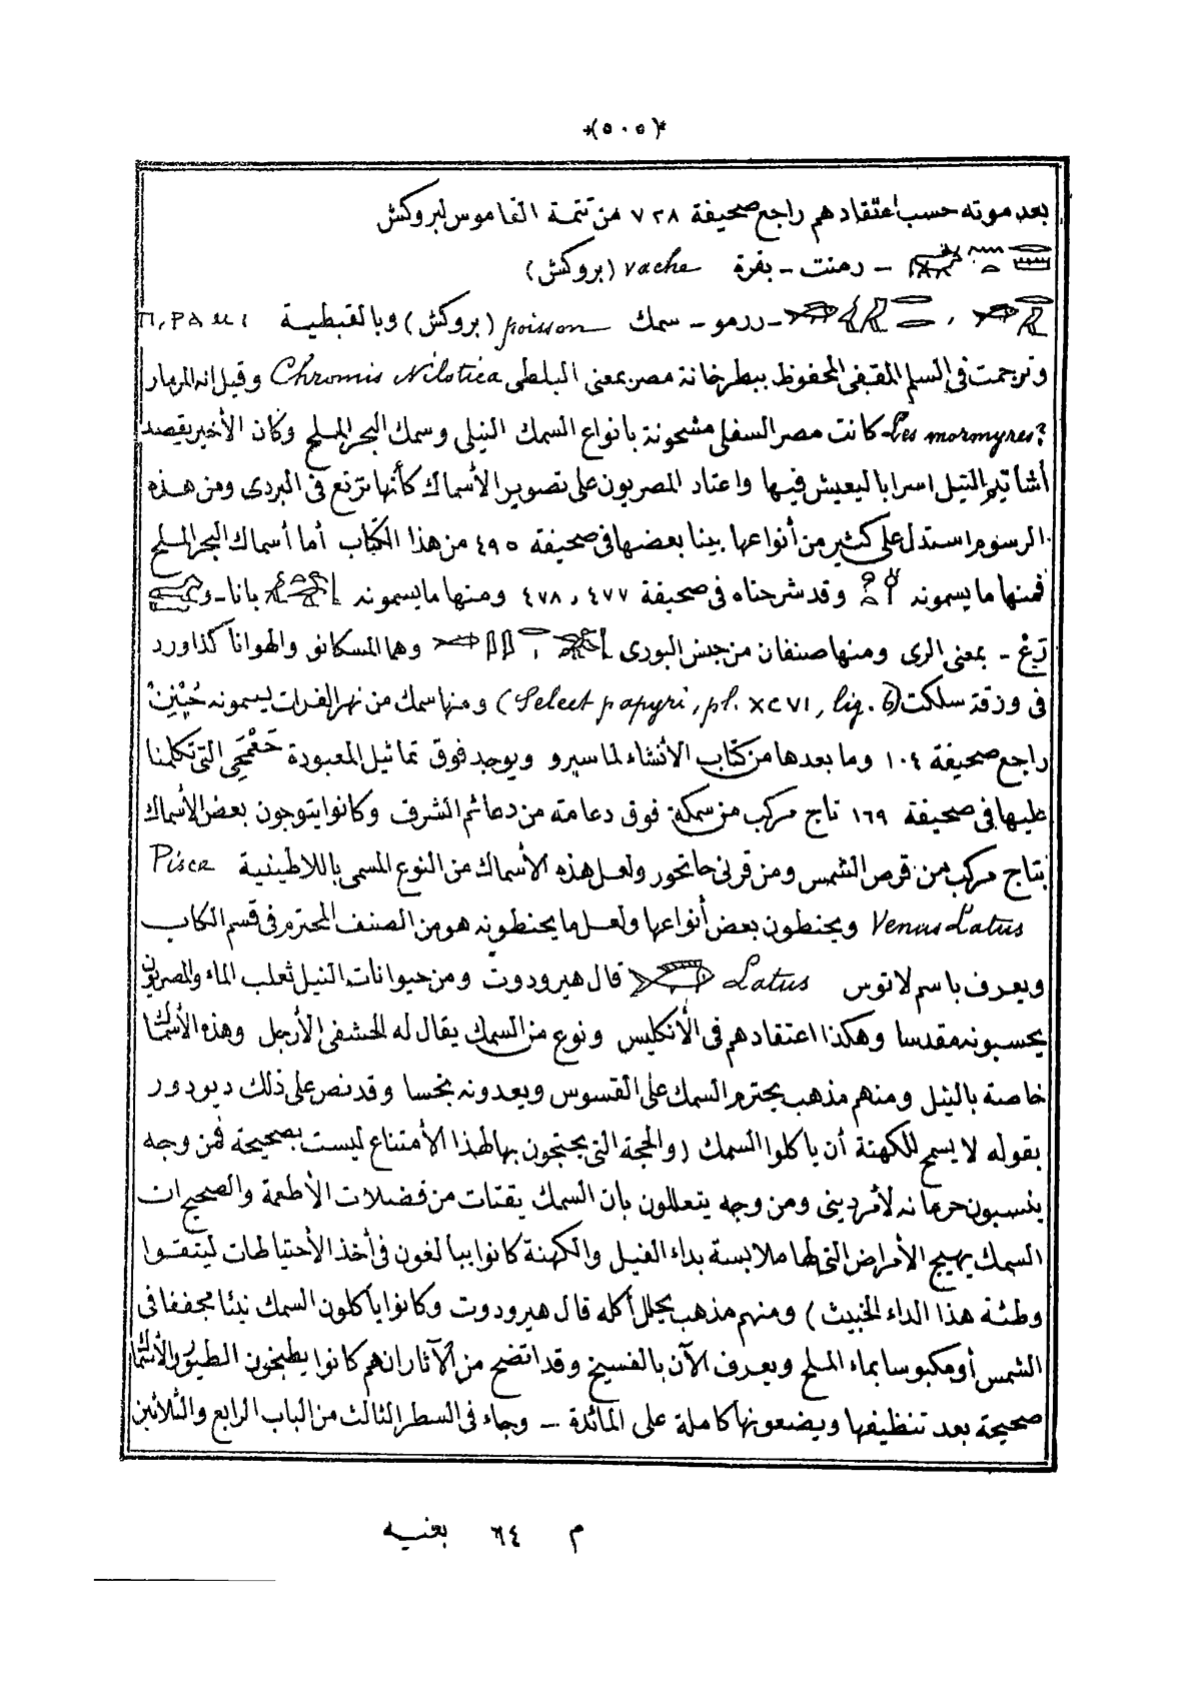 *(٥٠٥)*
بعد موته حسب اعتقادهم راجع صحيفة ٧٢٨ من تتمة القاموس لبروكش
- رمنت - بقرة vache (بروكش)
، - ررمو - سمك poisson (بروكش) وبالقبطية П, ΡΑΜΙ
وترجمت فى السلم المقفى المحفوظ ببطرخانة مصر بمعنى البلطى Chromis Nilotica وقيل انه المرمار
Les mormyres? كانت مصر السفلى مشحونة بانواع السمك النيلى وسمك البحر الملح وكان الأخير يقصد
أشاتيم النيل اسرابا ليعيش فيها واعتاد المصريون على تصوير الأسماك كأنها ترتع فى البردى ومن هذه
الرسوم استدل على كثير من أنواعها بينا بعضها فى صحيفة ٤٩٥ من هذا الكتاب أما أسماك البحر الملح
فمنها ما يسمونه وقد شرحناه فى صحيفة ٤٧٧ و ٤٧٨ ومنها ما يسمونه بانا - و
- بمعنى الرى ومنها صنفان من جنس البورى وهما المسكانو والهوانا كذا ورد
فى ورقة سلكت (Select papyri, pl. XCVI, lig. 6) ومنها سمك من نهر الفرات يسمونه
راجع صحيفة ١٠٤ وما بعدها من كتاب الأنشاء لماسپرو ويوجد فوق تماثيل المعبودة التى تكلمنا
عليها فى صحيفة ١٦٩ تاج مركب من سمكة فوق دعامة من دعائم الشرف وكانوا يتوجون بعض الأسماك
بتاج مركب من قرص الشمس ومن قرنى حاتحور ولعل هذه الأسماك من النوع المسمى باللاطينية Pisce
Venus Latus ويحنطون بعض أنواعها ولعل ما يحنطونه هو من الصنف المحترم فى قسم الكاب
ويعرف باسم لاتوس Latus قال هيرودوت ومن حيوانات النيل ثعلب الماء والمصريون
يحسبونه مقدسا وهكذا اعتقادهم فى الأنكليس ونوع من السمك يقال له الحشفى الأرجل وهذه الأسماك
خاصة بالنيل ومنهم مذهب يحترم السمك على القسوس ويعدونه نجسا وقد نص على ذلك ديودور
بقوله لا يسمح للكهنة أن ياكلوا السمك (والحجة التى يحتجون بها لهذا الأمتناع ليست بصحيحة فمن وجه
ينسبون حرمانه لأمر دينى ومن وجه يتعللون بان السمك يقتات من فضلات الأطعمة والصحيح ان
السمك يهيج الأمراض التى لها ملابسة بداء الفيل والكهنة كانوا يبالغون فى أخذ الأحتياطات ليتقوا
وطئة هذا الداء الخبيث) ومنهم مذهب يحلل أكله قال هيرودوت وكانوا يأكلون السمك نيئا مجففا فى
الشمس أو مكبوسا بماء الملح ويعرف الآن بالفسيخ وقد اتضح من الآثار انهم كانوا يطبخون الطيور والأسماك
صحيحة بعد تنظيفها ويضعونها كاملة على المائدة - وجاء فى السطر الثالث من الباب الرابع والثلاثين
م ٦٤ بغيه